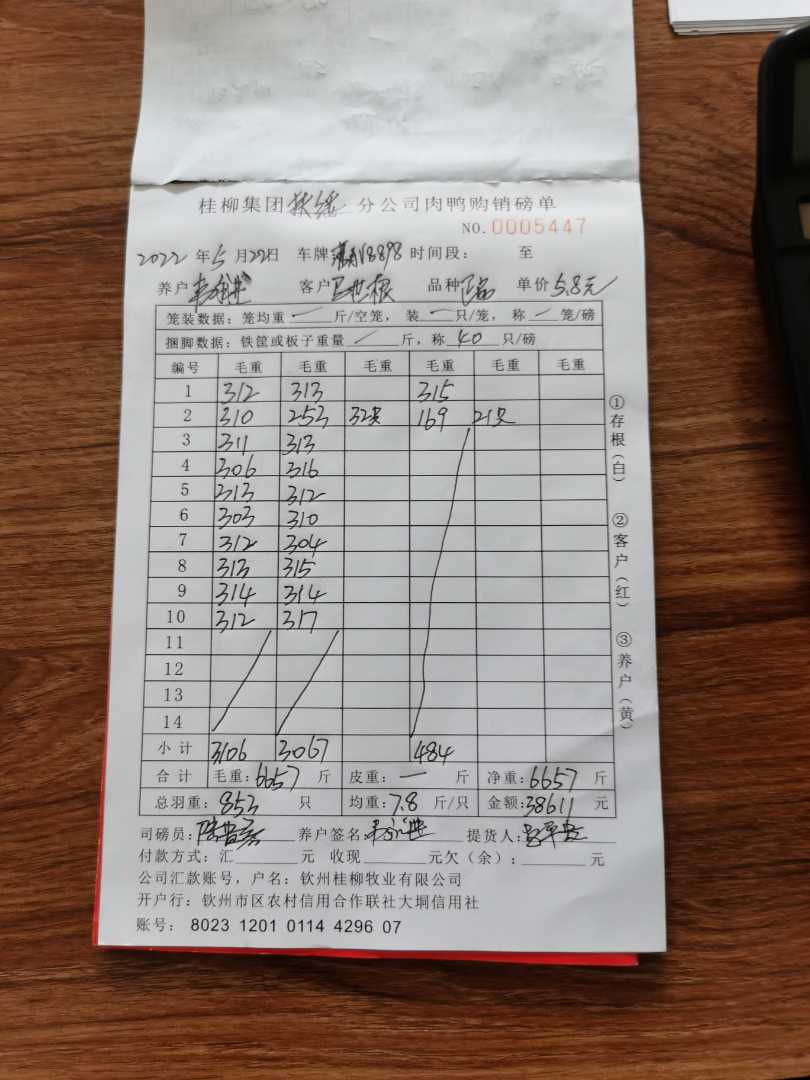 桂柳集团扶绥分公司肉鸭购销磅单
NO. 0005447
2022年5月22日 车牌 V8898 时间段： 至
养户 客户 品种 单价5.8元
笼装数据：笼均重 一 斤/空笼，装 一 只/笼，称 一 笼/磅
捆脚数据：铁筐或板子重量 / 斤，称 40 只/磅
编号 毛重 毛重 毛重 毛重 毛重 毛重
1 312 313 315
2 310 253 32只 169 21只
3 311 313
4 306 316
5 313 312
6 303 310
7 312 304
8 313 315
9 314 314
10 312 317
11
12
13
14
小计 3106 3067 484
合计 毛重：6657 斤 皮重：一 斤 净重：6657 斤
总羽重：853 只 均重：7.8 斤/只 金额：38611 元
司磅员： 养户签名： 提货人：
付款方式：汇 元 收现 元欠（余）： 元
公司汇款账号，户名：钦州桂柳牧业有限公司
开户行：钦州市区农村信用合作联社大垌信用社
账号： 8023 1201 0114 4296 07
①存根（白）
②客户（红）
③养户（黄）